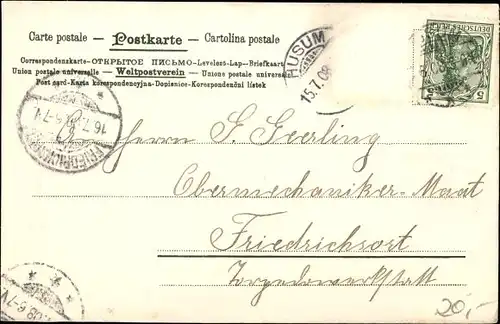 Carte postale – Postkarte – Cartolina postale
Correspondenzkarte–ОТКРЫТОЕ ПИСЬМО–Levelező-Lap–Briefkaart
Union postale universelle – Weltpostverein – Unione postale universale
Post card-Karta korespondencyjna-Dopisnice-Korespondenční lístek
HUSUM
15.7.08
DEUTSCHES REICH
5 5
16.7
FRIEDRICHSORT
Herrn S. Seerling
Obermechaniker-Maat
Friedrichsort
Torpedowerkstatt
20,-